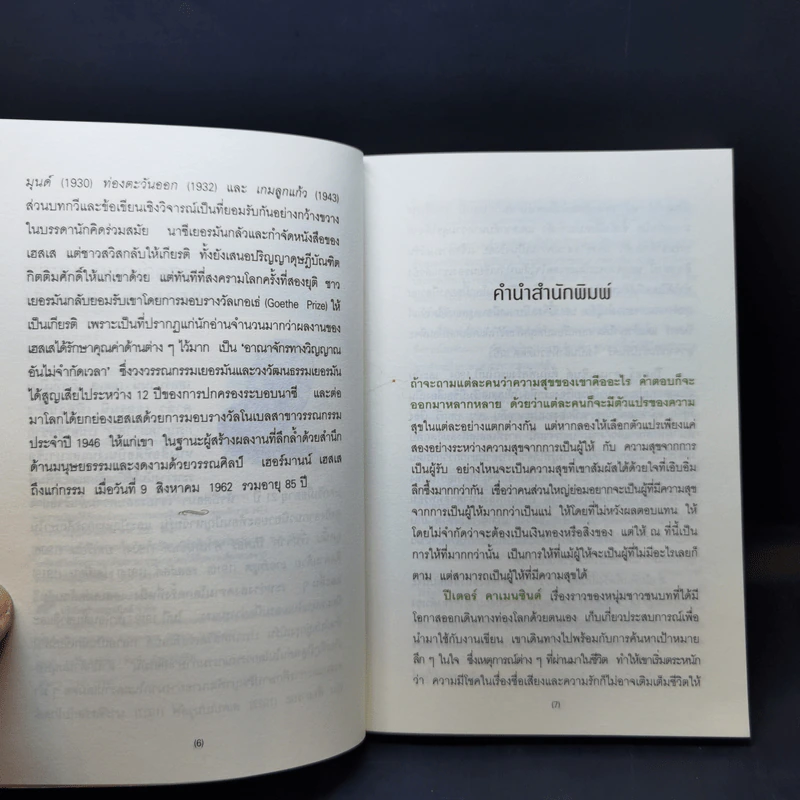 มุนด์ (1930) ท่องตะวันออก (1932) และ เกมลูกแก้ว (1943)
ส่วนบทกวีและข้อเขียนเชิงวิจารณ์เป็นที่ยอมรับกันอย่างกว้างขวาง
ในบรรดานักคิดร่วมสมัย นาซีเยอรมันกลัวและกำจัดหนังสือของ
เฮสเส แต่ชาวสวิสกลับให้เกียรติ ทั้งยังเสนอปริญญาดุษฎีบัณฑิต
กิตติมศักดิ์ให้แก่เขาด้วย แต่ทันทีที่สงครามโลกครั้งที่สองยุติ ชาว
เยอรมันกลับยอมรับเขาโดยการมอบรางวัลเกอเธ่ (Goethe Prize) ให้
เป็นเกียรติ เพราะเป็นที่ปรากฏแก่นักอ่านจำนวนมากว่าผลงานของ
เฮสเสได้รักษาคุณค่าด้านต่าง ๆ ไว้มาก เป็น "อาณาจักรทางวิญญาณ
อันไม่จำกัดเวลา" ซึ่งวงวรรณกรรมเยอรมันและวงวัฒนธรรมเยอรมัน
ได้สูญเสียไประหว่าง 12 ปีของการปกครองระบอบนาซี และต่อ
มาโลกได้ยกย่องเฮสเสด้วยการมอบรางวัลโนเบลสาขาวรรณกรรม
ประจำปี 1946 ให้แก่เขา ในฐานะผู้สร้างผลงานที่ลึกล้ำด้วยสำนึก
ด้านมนุษยธรรมและงดงามด้วยวรรณศิลป์ เฮอร์มานน์ เฮสเส
ถึงแก่กรรม เมื่อวันที่ 9 สิงหาคม 1962 รวมอายุ 85 ปี
(6)
คำนำสำนักพิมพ์
ถ้าจะถามแต่ละคนว่าความสุขของเขาคืออะไร คำตอบก็จะ
ออกมาหลากหลาย ด้วยว่าแต่ละคนก็จะมีตัวแปรของความ
สุขในแต่ละอย่างแตกต่างกัน แต่หากลองให้เลือกตัวแปรเพียงแค่
สองอย่างระหว่างความสุขจากการเป็นผู้ให้ กับ ความสุขจากการ
เป็นผู้รับ อย่างไหนจะเป็นความสุขที่เขาสัมผัสได้ด้วยใจที่เอิบอิ่ม
ลึกซึ้งมากกว่ากัน เชื่อว่าคนส่วนใหญ่ย่อมอยากจะเป็นผู้ที่มีความสุข
จากการเป็นผู้ให้มากกว่าเป็นแน่ ให้โดยที่ไม่หวังผลตอบแทน ให้
โดยไม่จำกัดว่าจะต้องเป็นเงินทองหรือสิ่งของ แต่ให้ ณ ที่นี้เป็น
การให้ที่มากกว่านั้น เป็นการให้ที่แม้ผู้ให้จะเป็นผู้ที่ไม่มีอะไรเลยก็
ตาม แต่สามารถเป็นผู้ให้ที่มีความสุขได้
ปีเตอร์ คาเมนซินด์ เรื่องราวของหนุ่มชาวชนบทที่ได้มี
โอกาสออกเดินทางท่องโลกด้วยตนเอง เก็บเกี่ยวประสบการณ์เพื่อ
นำมาใช้กับงานเขียน เขาเดินทางไปพร้อมกับการค้นหาเป้าหมาย
ลึก ๆ ในใจ ซึ่งเหตุการณ์ต่าง ๆ ที่ผ่านมาในชีวิต ทำให้เขาเริ่มตระหนัก
ว่า ความมีโชคในเรื่องชื่อเสียงและความรักก็ไม่อาจเติมเต็มชีวิตให้
(7)